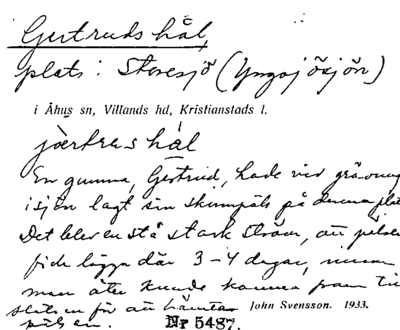 Gertruds hål,
plats i Storesjö (Yngsjösjön)
i Åhus sn, Villands hd, Kristianstads l.
jærtras hål
En gumma, Gertrud, hade vid grävning
i sjön lagt sin skinnpäls på denna plats
Det blev en så stark ström, att pälsen
fick ligga där 3-4 dagar, innan
man åter kunde komma fram till
platsen för att hämta John Svensson. 1933.
pälsen. Nr 5487.